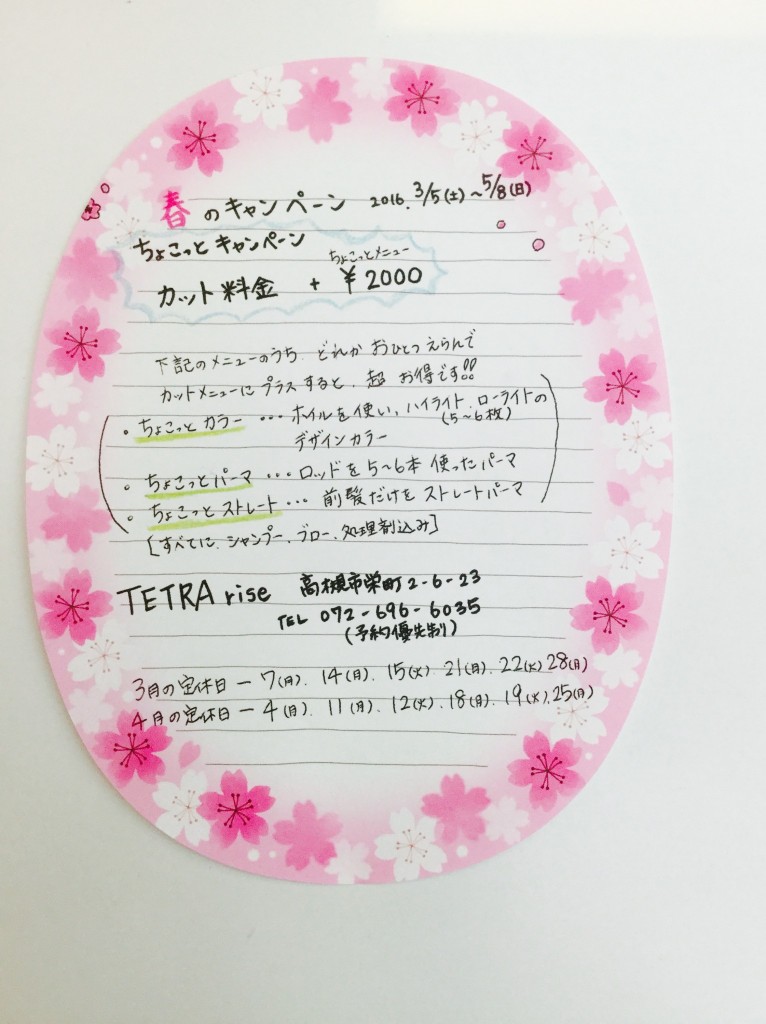 春のキャンペーン 2016. 3/5(土)~5/8(日)
ちょこっとキャンペーン
ちょこっとメニュー
カット料金 + ¥2000
下記のメニューのうち、どれか おひとつ えらんで
カットメニューに プラスすると、超 お得です!!
・ちょこっと カラー … ホイルを使い、ハイライト、ローライトの
(5~6枚)
デザインカラー
・ちょこっと パーマ … ロッドを5~6本 使ったパーマ
・ちょこっと ストレート … 前髪だけを ストレートパーマ
[すべてに、シャンプー、ブロー、処理剤込み]
TETRA rise 高槻市栄町2-6-23
TEL 072-696-6035
(予約優先制)
3月の定休日 ― 7(月)、14(月)、15(火)、21(月)、22(火)、28(月)
4月の定休日 ― 4(月)、11(月)、12(火)、18(月)、19(火)、25(月)